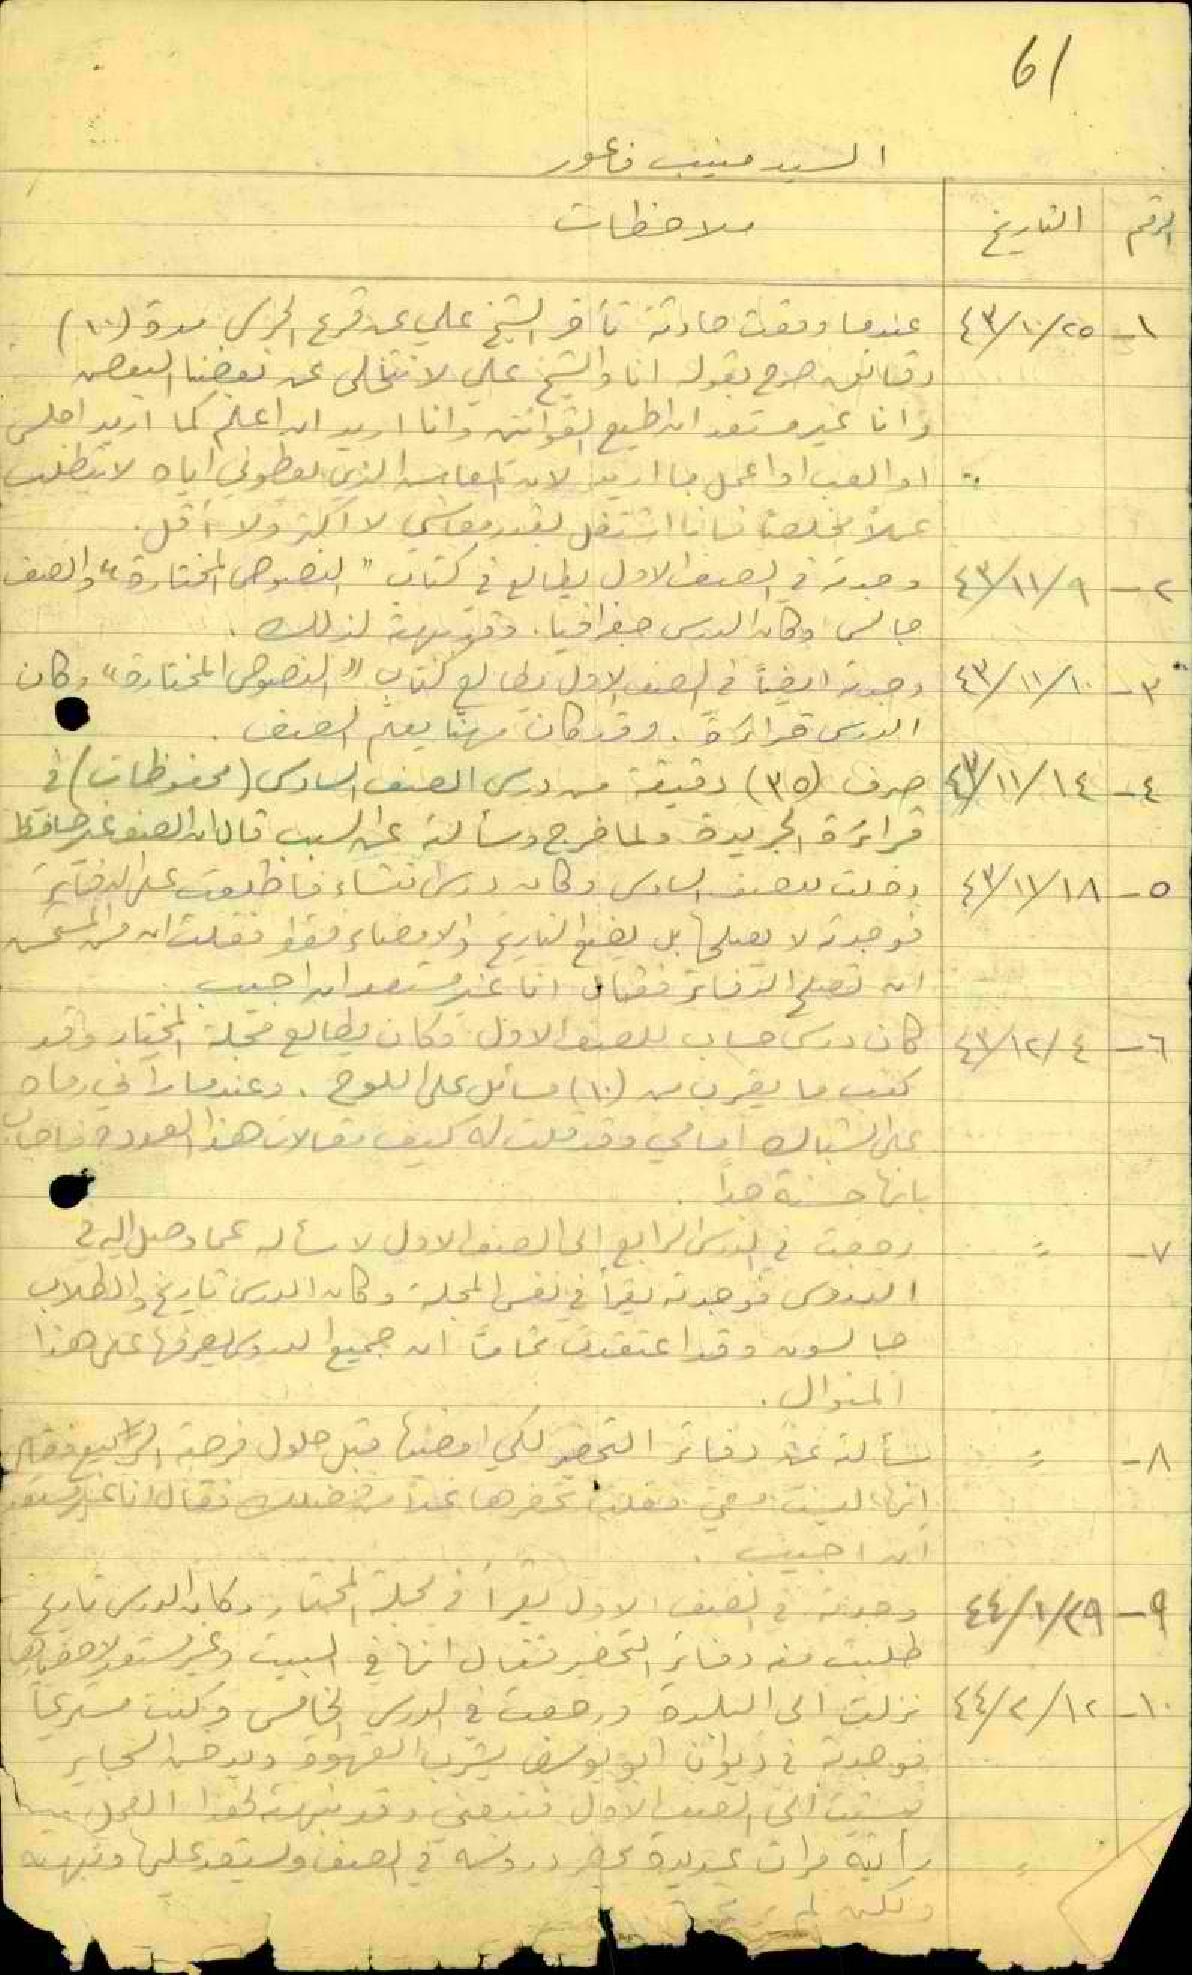 61
السيد منيب فاعور
الرقم التاريخ ملاحظات
١- ٤٣/١٠/٢٥ عندما وقعت حادثة تأخر الشيخ علي عن قرع الجرس مدة (١٠)
دقائق صرح بقوله انا والشيخ علي لا نتخلى عن بعضنا البعض
وانا غير مستعد ان اطيع القوانين وانا اريد ان اعلم كما اريد اجلس
او العب او اعمل ما اريد لان المعاش الذي يعطوني اياه لا يتطلب
عملاً مخلصاً فانا اشتغل بقدر معاشي لا اكثر ولا أقل.
٢- ٤٣/١١/٩ وجدته في الصف الاول يطالع في كتاب "النصوص المختارة" والصف
جالس وكان الدرس جغرافيا. وقد نبهته لذلك.
٣- ٤٣/١١/١٠ وجدته ايضاً في الصف الاول يطالع كتاب "النصوص المختارة" وكان
الدرس قراءة. وقد كان مهنا يعلم الصف.
٤- ٤٣/١١/١٤ صرف (٣٥) دقيقة من درس الصف السادس (محفوظات) في
قراءة الجريدة ولما خرج وسألته عن السبب قال ان الصف غير حافظ
٥- ٤٣/١١/١٨ دخلت للصف السادس وكان درس انشاء فاطلعت على الدفاتر
فوجدته لا يصلحها بل يضع التاريخ والامضاء فقط فقلت ان من المستحسن
ان تصلح الدفاتر فقال انا غير مستعد ان اجيب
٦- ٤٣/١٢/٤ كان درس حساب للصف الاول وكان يطالع مجلة المختار وقد
كتب ما يقرب من (١٠) مسائل على اللوح. وعندما رآني رماه
على الشباك امامي وقد قلت له كيف مقالات هذا العدد فاجاب
بانها حسنة جداً.
٧- = رجعت في الدرس الرابع الى الصف الاول لاسأله عما وصل اليه في
الدروس فوجدته يقرأ في نفس المجلة وكان الدرس تاريخ والطلاب
جالسون وقد اعتقدت تماماً ان جميع الدروس يصرفها على هذا
المنوال.
٨- = سألته عن دفاتر التحضير لكي امضيها قبل حلول فرصة الربيع فقال
انها ليست معي فقلت تحضرها غداً من فضلك فقال انا غير مستعد
ان اجيب.
٩- ٤٤/١/٢٩ وجدته في الصف الاول يقرأ في مجلة المختار وكان الدرس تاريخ
طلبت منه دفاتر التحضير فقال انها في البيت وغير مستعد لاحضارها
١٠- ٤٤/٢/١٢ نزلت الى البلدة ورجعت في الدرس الخامس وكنت مستريحاً
فوجدته في ديوان ابو يوسف يشرب القهوة ويدخن السجاير
الى الصف الاول فتبعني وقد نبهته لهذا العمل
= رأيته مرات عديدة يحضر دروسه في الصف ويستعد عليها ونبهته
ولكن لم